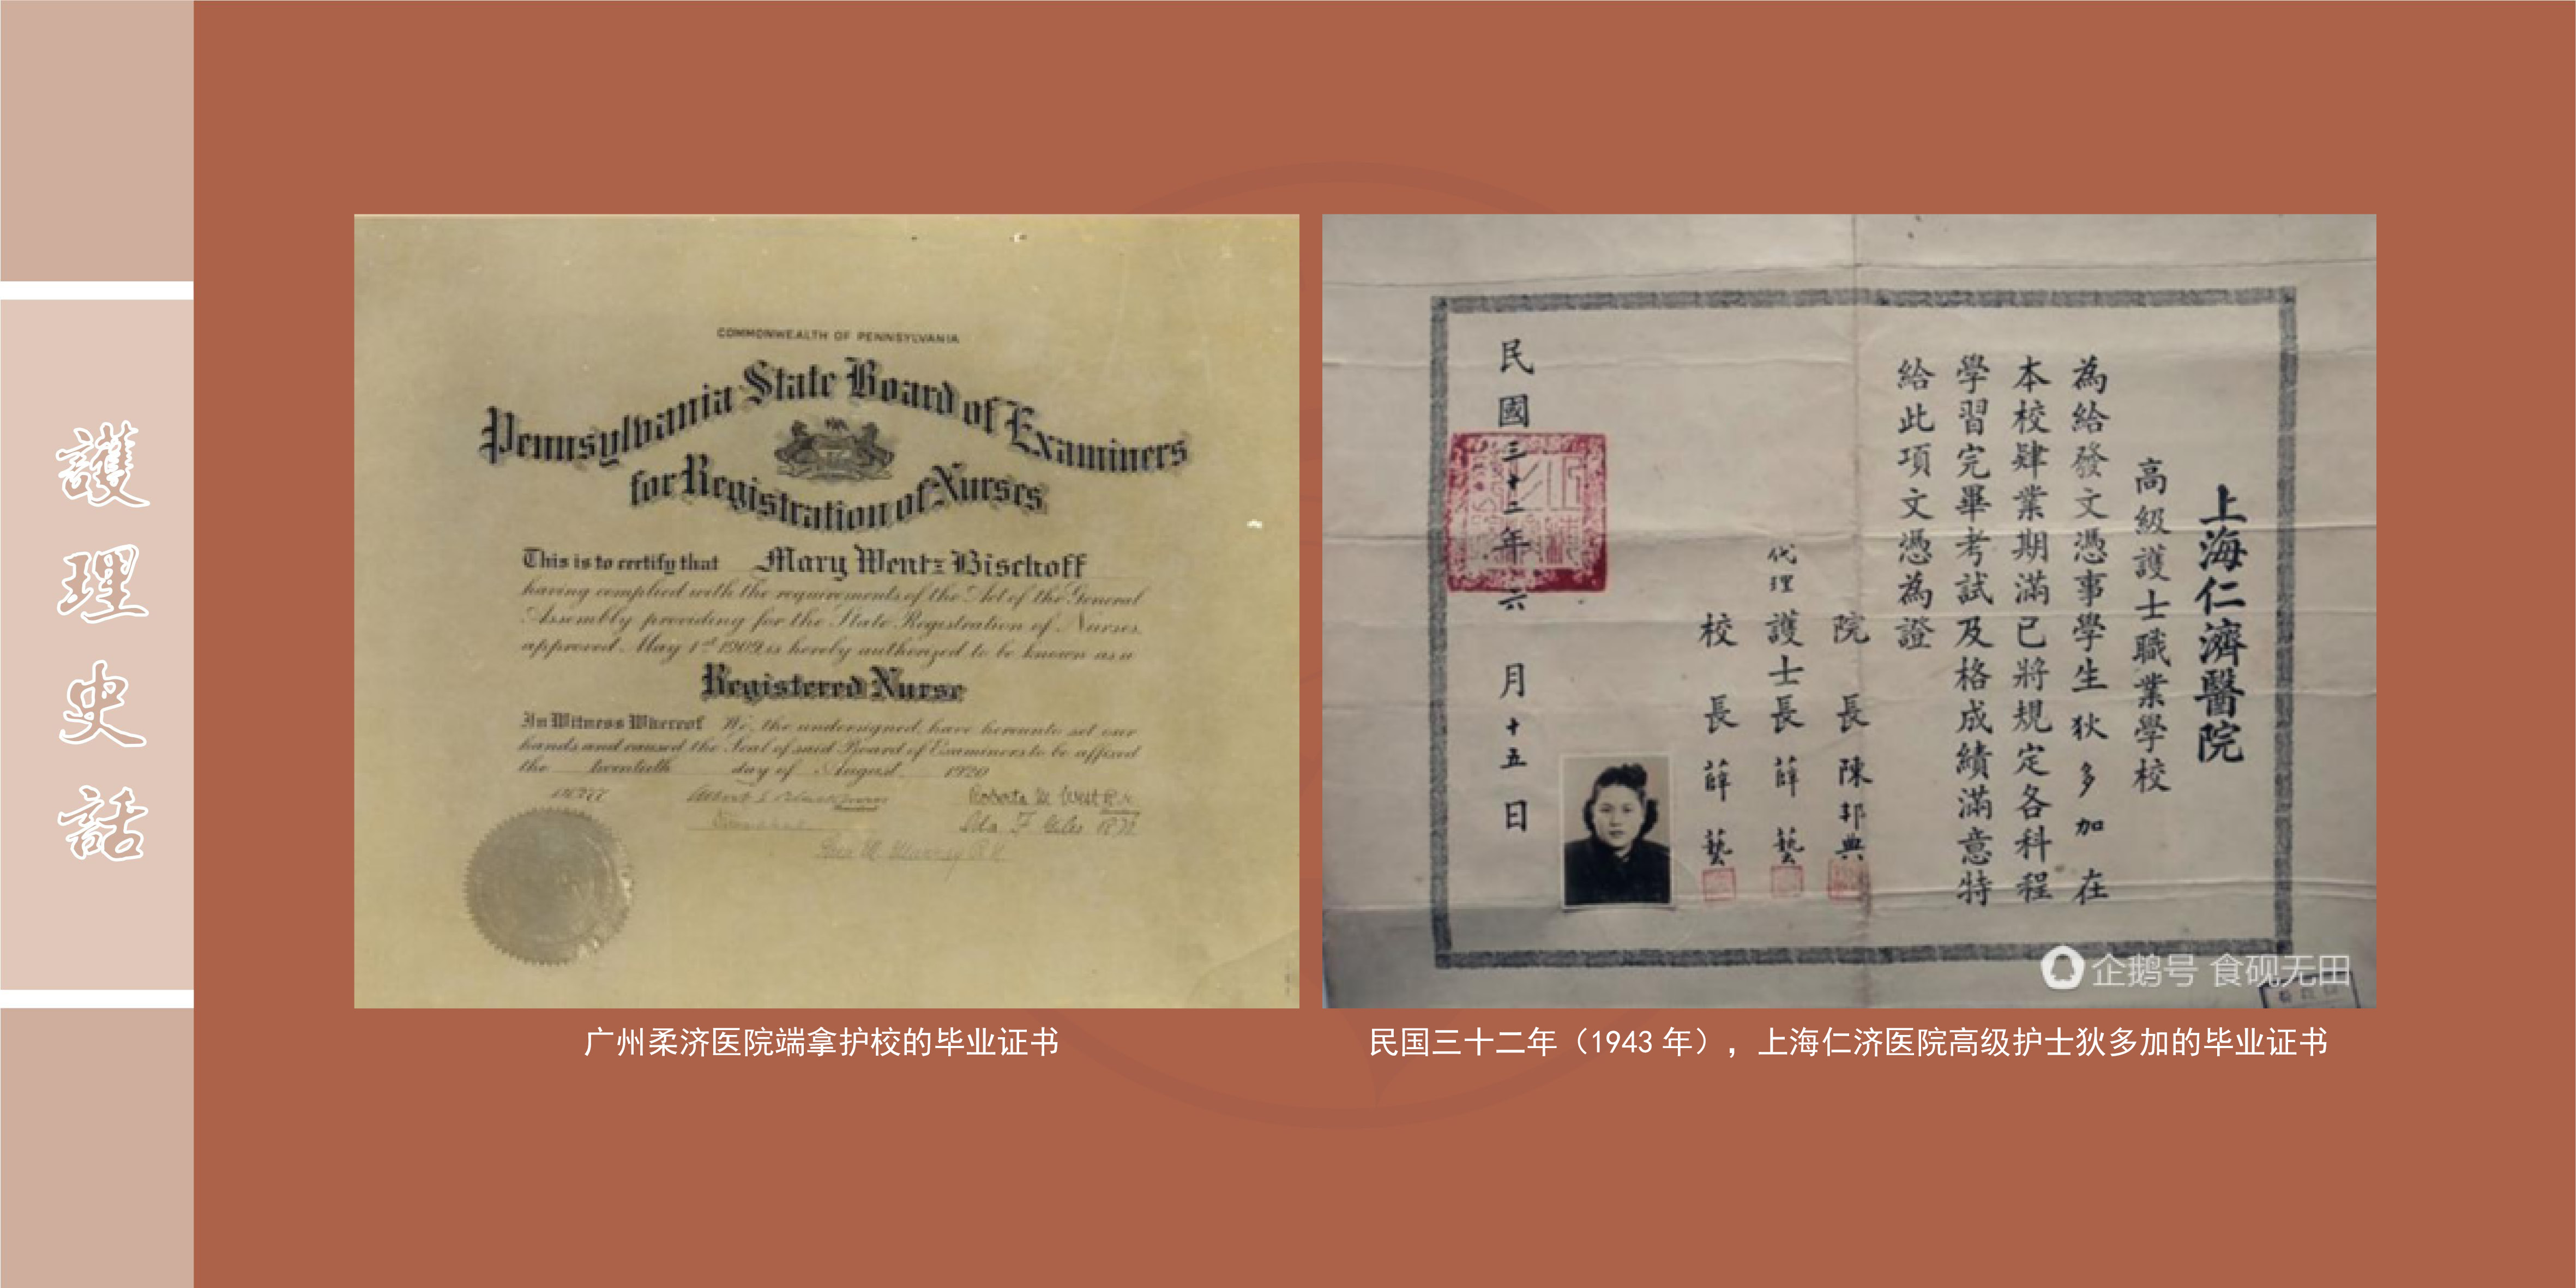 護理史話
COMMONWEALTH OF PENNSYLVANIA
Pennsylvania State Board of Examiners
for Registration of Nurses
This is to certify that Mary Wentz Bischoff
having complied with the requirements of the Act of the General
Assembly providing for the State Registration of Nurses,
approved May 1st 1909, is hereby authorized to be known as a
Registered Nurse
In Witness Whereof We, the undersigned, have hereunto set our
hands and caused the Seal of said Board of Examiners to be affixed
the twentieth day of August 1920
Roberta M. West R.N.
Ida F. Giles R.N.
广州柔济医院端拿护校的毕业证书
上海仁濟醫院
高級護士職業學校
為給發文憑事學生狄多加在
本校肄業期滿已將規定各科程
學習完畢考試及格成績滿意特
給此項文憑為證
院長陳邦典
代理護士長薛藝
校長薛藝
民國三十二年六月十五日
企鹅号 食砚无田
民国三十二年（1943 年），上海仁济医院高级护士狄多加的毕业证书